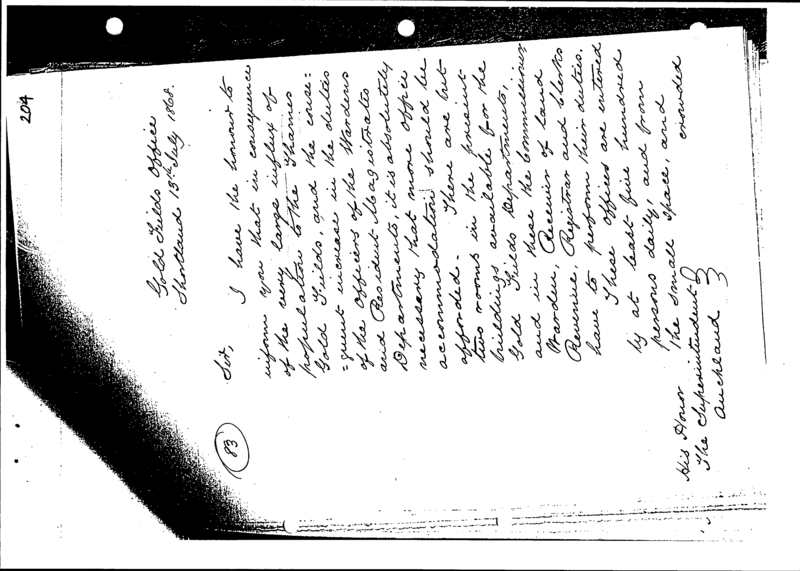 204
Gold Fields Office
Shortland 13th July 1868.
(83)
Sir,
I have the honour to
inform you that in consequence
of the very large influx of
population to the Thames
Gold Fields, and the conse=
=quent increase in the duties
of the Officers of the Wardens
and Resident Magistrates
Departments, it is absolutely
necessary that more office
accommodation should be
afforded. There are but
two rooms in the present
buildings available for the
Gold Fields Departments,
and in these the Commissioner
Warden, Receiver of Land
Revenue, Registrar and Clerks
have to perform their duties.
These offices are entered
by at least five hundred
persons daily, and from
the small space, and crowded
His Honor
The Superintendent
Auckland